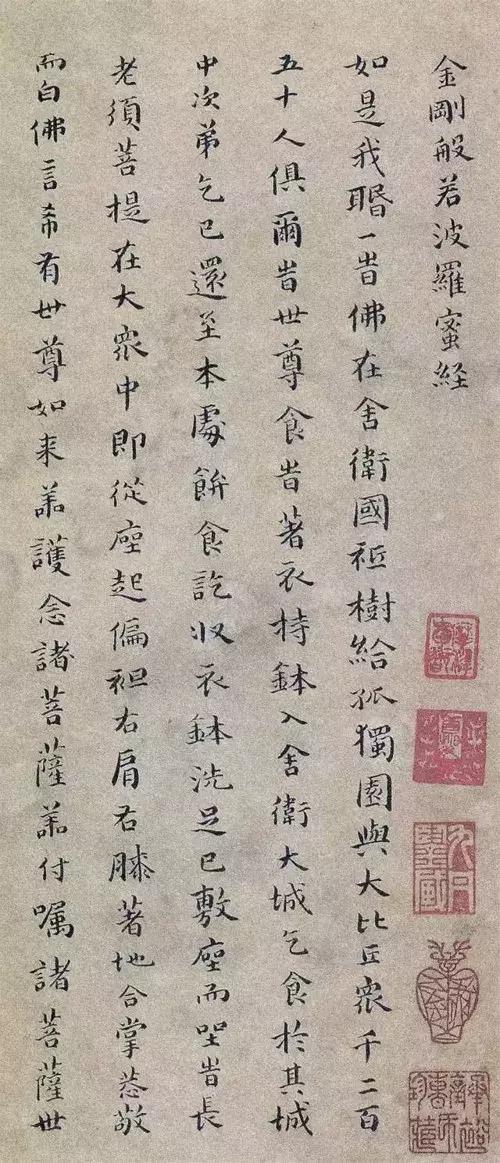 金剛般若波羅蜜経
如是我䎽一旹佛在舍衛國祇樹給孤獨園與大比丘眾千二百
五十人俱爾旹世尊食旹著衣持鉢入舍衛大城乞食於其城
中次苐乞已還至本處飰食訖収衣鉢洗足已敷座而坐旹長
老須菩提在大眾中即從座起偏袒右肩右膝著地合掌恭敬
而白佛言希有世尊如来善護念諸菩薩善付嘱諸菩薩世